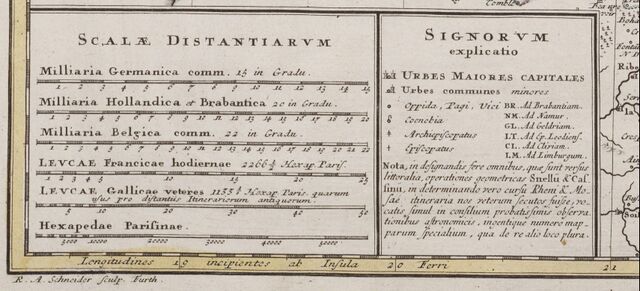 SCALÆ DISTANTIARVM
Milliaria Germanica comm. 15 in Gradu.
1 2 3 4 5 6 7 8 9 10 11 12 13 14 15
Milliaria Hollandica et Brabantica 20 in Gradu.
1 2 3 4 5 6 7 8 9 10 11 12 13 14 15 16 17 18 19 20
Milliaria Belgica comm. 22 in Gradu.
1 2 3 4 5 6 7 8 9 10 11 12 13 14 15 16 17 18 19 20 21 22
LEVCAE Francicae hodiernae 2266⅔ Hexap. Paris.
1 2 3 4 5 10 15 20 25
LEVCAE Gallicae veteres Hexap. Paris. quarum
usus pro distantiis Itinerariorum antiquorum.
5 10 20 30 40 50
Hexapedae Parisinae.
10000 20000 30000 40000 50000
SIGNORVM
explicatio
URBES MAIORES CAPITALES
Urbes communes minores
Oppida, Pagi, Vici
Coenobia
Archiepiscopatus
Episcopatus
BR. Ad Brabantiam.
NM. Ad Namur.
GL. Ad Geldriam.
LT. Ad Ep. Leodiens.
CL. Ad Cliviam.
LM. Ad Limburgum.
Nota, in designandis fere omnibus, quæ sunt versus
littoralia, operationes geometricas Snellii & Cas
sini, in determinando vero cursu Rheni & Mo-
sae itineraria nos veterum secutos fuisse, vo-
catis simul in consilium probatissimis observa
tionibus astronomicis, ingentique numero map-
parum specialium, qua de re alio loco plura.
Longitudines 19 incipientes ab Insula 20 Ferri 21
R. A. Schneider sculp. Furth.